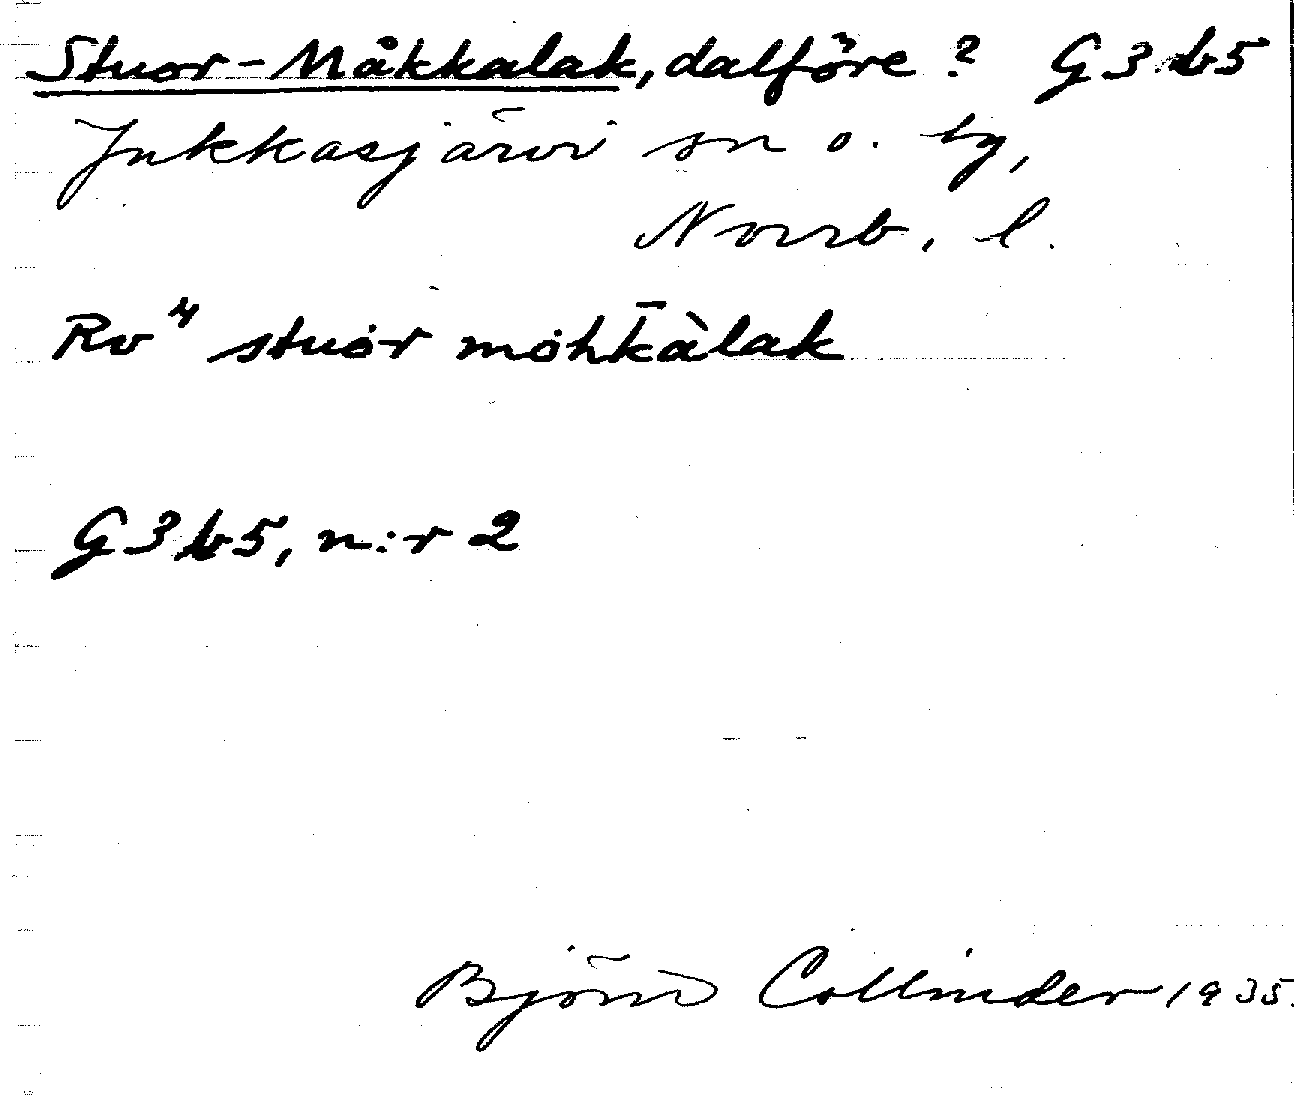 Stuor-Måkkalak, dalföre ? G 3 b5
Jukkasjärvi sn o. by,
Norrb. l.
Rv⁴ stuȯr mȯhk̄àlak
G 3 b5, n:r 2
Björn Collinder 1935.